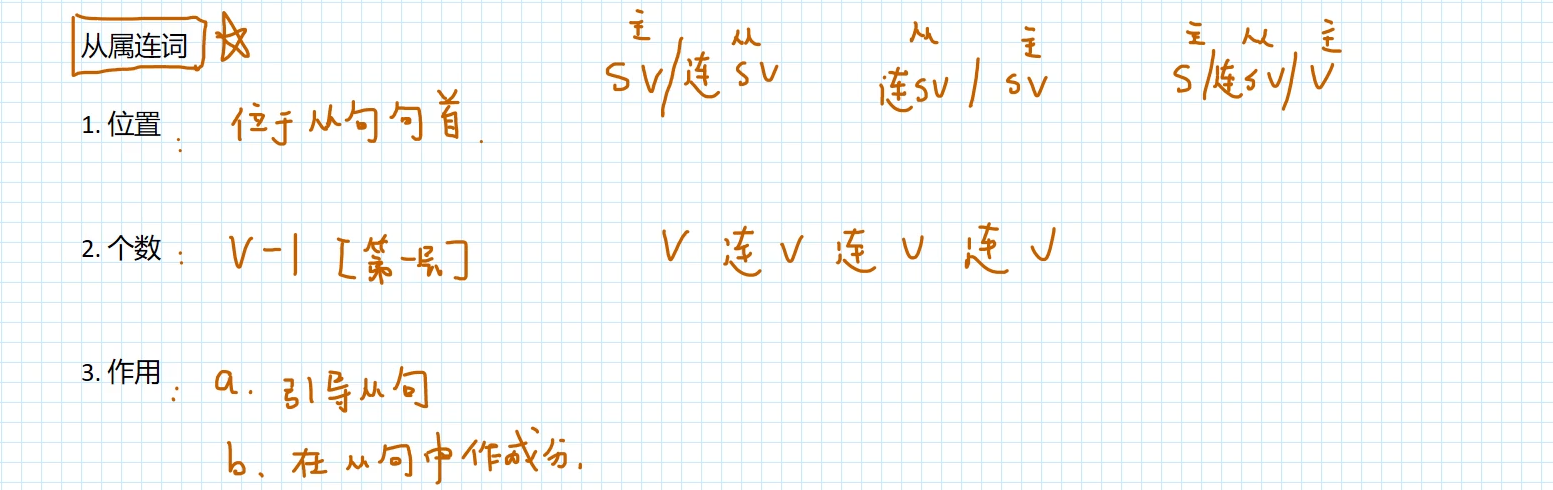 从属连词 ☆
主 从 从 主 主 从 主
SV/连 SV 连SV / SV S/连SV/V
1. 位置: 位于从句句首.
2. 个数: V-1 [第一层] V 连 V 连 V 连 V
3. 作用: a. 引导从句
b、在从句中作成分.